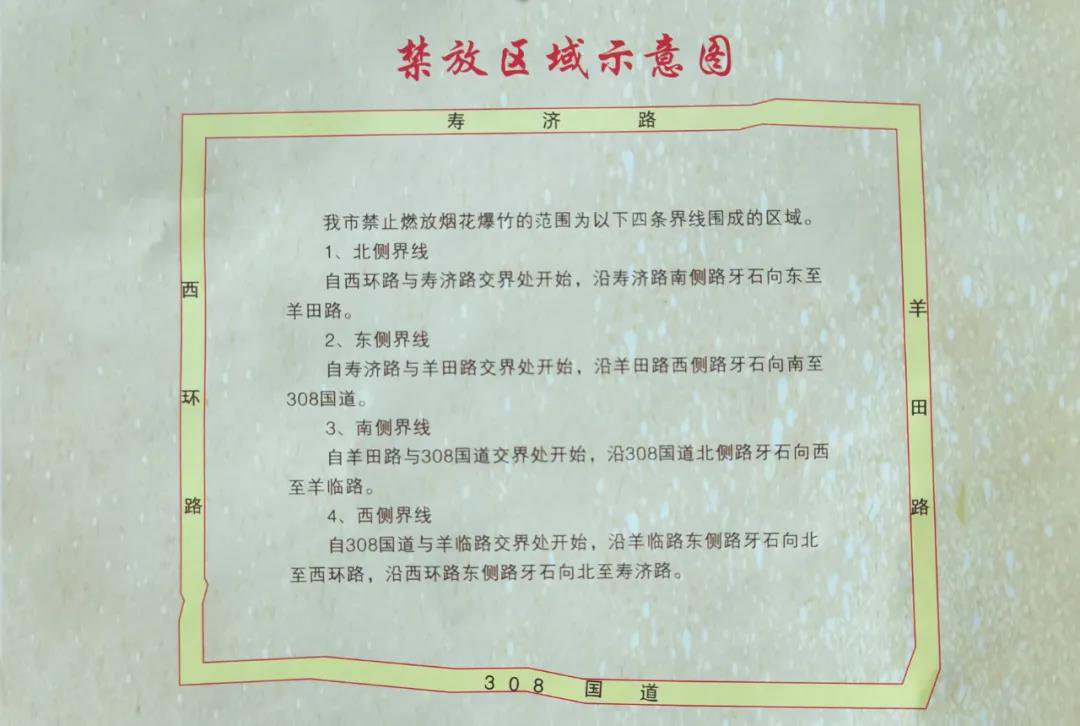 禁放区域示意图
寿济路
我市禁止燃放烟花爆竹的范围为以下四条界线围成的区域。
1、北侧界线
自西环路与寿济路交界处开始，沿寿济路南侧路牙石向东至
羊田路。
2、东侧界线
自寿济路与羊田路交界处开始，沿羊田路西侧路牙石向南至
308国道。
3、南侧界线
自羊田路与308国道交界处开始，沿308国道北侧路牙石向西
至羊临路。
4、西侧界线
自308国道与羊临路交界处开始，沿羊临路东侧路牙石向北
至西环路，沿西环路东侧路牙石向北至寿济路。
西环路
羊田路
308国道